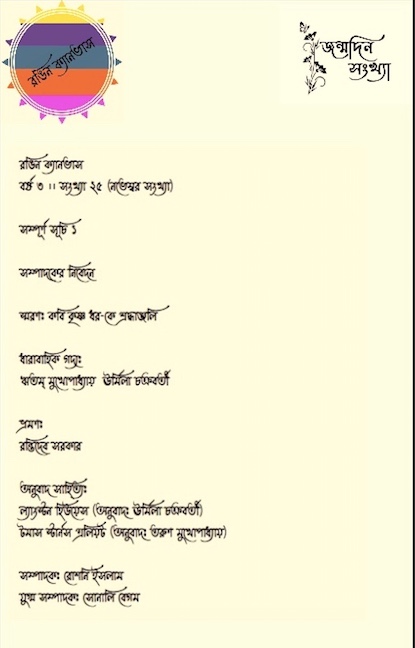 রঙিন ক্যানভাস
জন্মদিন
সংখ্যা
রঙিন ক্যানভাস
বর্ষ ৩ ।। সংখ্যা ২৫ (নভেম্বর সংখ্যা)
সম্পূর্ণ সূচি ১
সম্পাদকের নিবেদন
স্মরণঃ কবি কৃষ্ণ ধর-কে শ্রদ্ধাঞ্জলি
ধারাবাহিক গদ্যঃ
ঋতম্ মুখোপাধ্যায় ঊর্মিলা চক্রবর্তী
ভ্রমণঃ
রন্তিদেব সরকার
অনুবাদ সাহিত্যঃ
ল্যাংস্টন হিউয়েস (অনুবাদঃ ঊর্মিলা চক্রবর্তী)
টমাস স্টার্নস এলিয়ট (অনুবাদঃ তরুণ মুখোপাধ্যায়)
সম্পাদকঃ রোশনি ইসলাম
যুগ্ম সম্পাদকঃ সোনালি বেগম